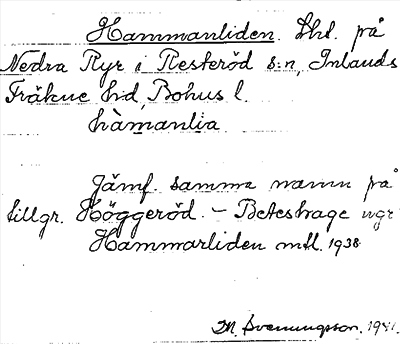 Hammanliden. Lhl. på
Nedra Ryr i Resteröd s:n, Inlands
Fräkne hd, Bohus l.
hàmanlia
Jämf. samma namn på
tillgr. Höggeröd. – Beteshage
Hammarliden mtl. 1938
M. Svenningsson. 1941.